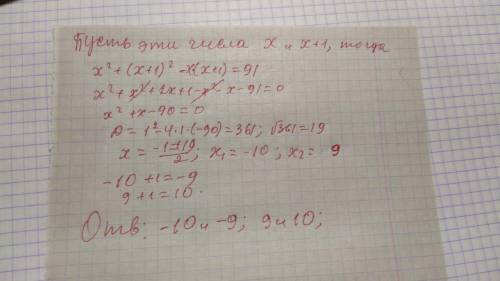 Пусть эти числа x и x+1, тогда
x²+(x+1)²-x(x+1)=91
x²+x²+2x+1-x²-x-91=0
x²+x-90=0
D=1²-4·1·(-90)=361; √361=19
x=(-1±19)/2; x₁=-10; x₂= 9
-10+1=-9
9+1=10.
Отв: -10 и -9; 9 и 10;